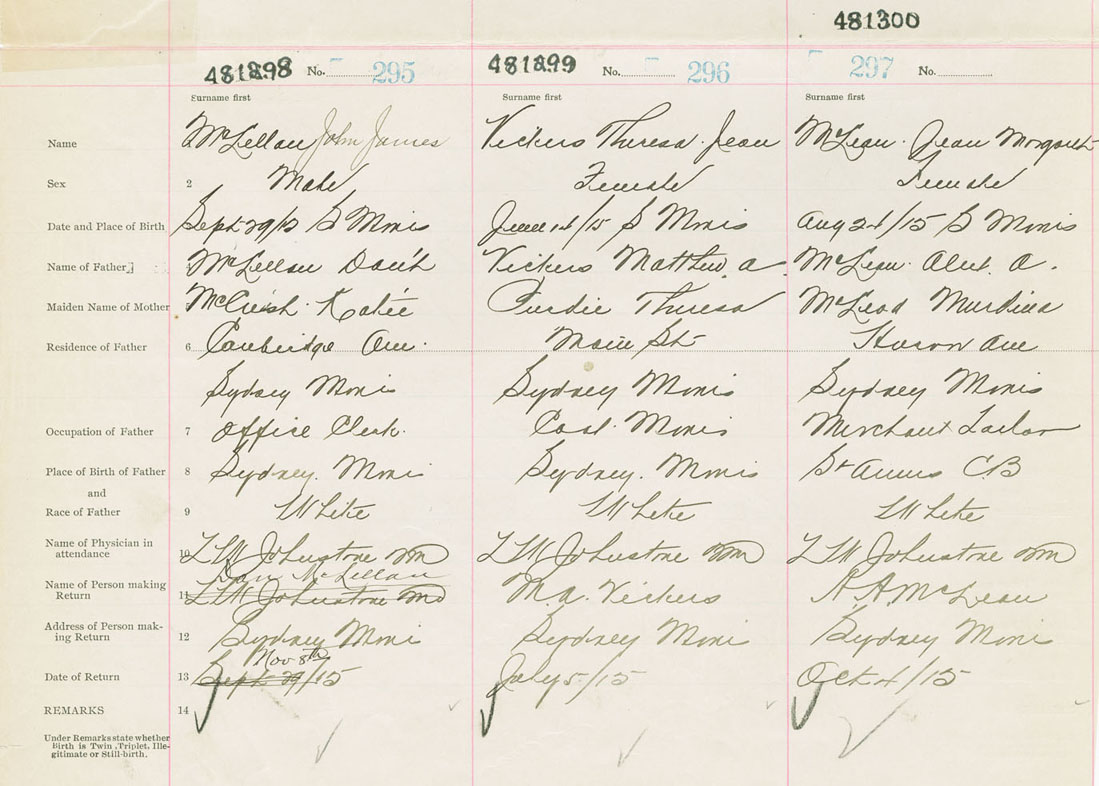 481300
481298 No. 295 481299 No. 296 297 No.
Surname first Surname first Surname first
Name McLellan John James Vickers Theresa Jean McLean Jean Margaret
Sex 2 Male Female Female
Date and Place of Birth Sept 29/15 S Mines June 14/15 S Mines Aug 24/15 S Mines
Name of Father McLellan Dan Vickers Matthew A. McLean Alex A.
Maiden Name of Mother 5 Katie Purdie Theresa McLeod Murdina
Residence of Father 6 Cambridge Ave. Main St Huron Ave
Sydney Mines Sydney Mines Sydney Mines
Occupation of Father 7 Office Clerk. Coal Mines Merchant Tailor
Place of Birth of Father 8 Sydney Mines Sydney Mines St Anns C.B
and
Race of Father 9 White White White
Name of Physician in 10 L W Johnstone MD L W Johnstone MD L W Johnstone MD
attendance
Dan McLellan
Name of Person making 11 L W Johnstone MD M.A. Vickers A. A. McLean
Return
Address of Person mak- 12 Sydney Mines Sydney Mines Sydney Mines
ing Return
Nov 8th
Date of Return 13 Sept 29/15 July 5/15 Oct 4/15
REMARKS 14
Under Remarks state whether
Birth is Twin, Triplet, Ille-
gitimate or Still-birth.